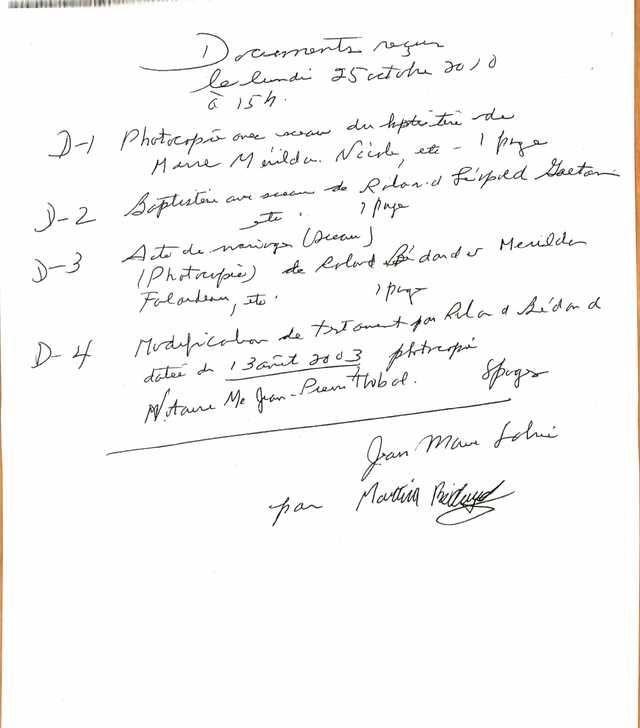 Documents reçus
le lundi 25 octobre 2010
à 15h.
D-1 Photocopie avec sceau du baptistère de
Marie Mérilda Nicole, etc - 1 page
D-2 Baptistère avec sceau de Roland Léopold Gaétan
etc. 1 page
D-3 Acte de mariage (sceau)
(Photocopie) de Roland Bédard et Merilda
Falardeau, etc. 1 page
D-4 Modification de testament par Roland Bédard
datée du 13 août 2003 photocopie
Notaire Me Jean-Pierre 8 pages
Jean Marc
par Martin